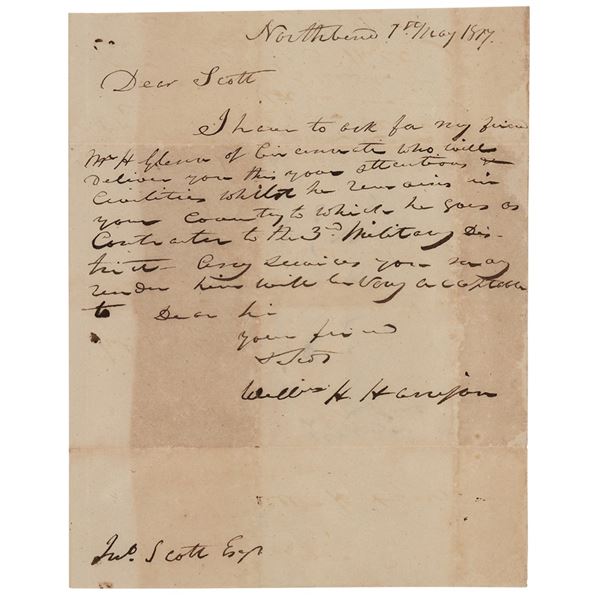 Northbend 7th May 1817.
Dear Scott
I have to ask for my friend
Mr H Glenn of Cincinnati who will
deliver you this your attentions &
Civilities whilst he remains in
your Country to which he goes as
Contractor to the 3d. Military Dis-
trict – Any Services you may
render him will be very acceptable
to Dear Sir
your friend
& Svt
Willm. H. Harrison
Jno. Scott Esqr